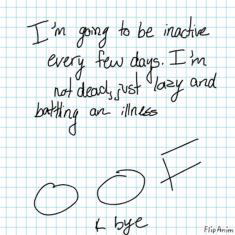 I'm going to be inactive
every few days. I'm
not dead, just lazy and
battling an illness
OOF
bye
FlipAnim